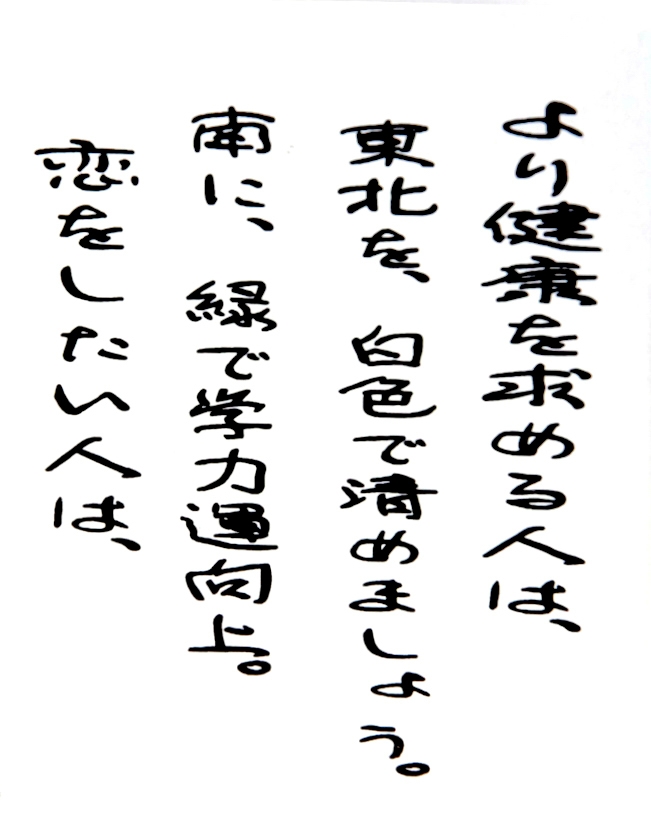 より健康を求める人は、
東北を、白色で清めましょう。
南に、緑で学力運向上。
恋をしたい人は、